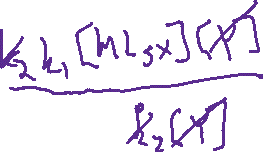 k₂k₁[ML₅X][Y]
k₂[Y]